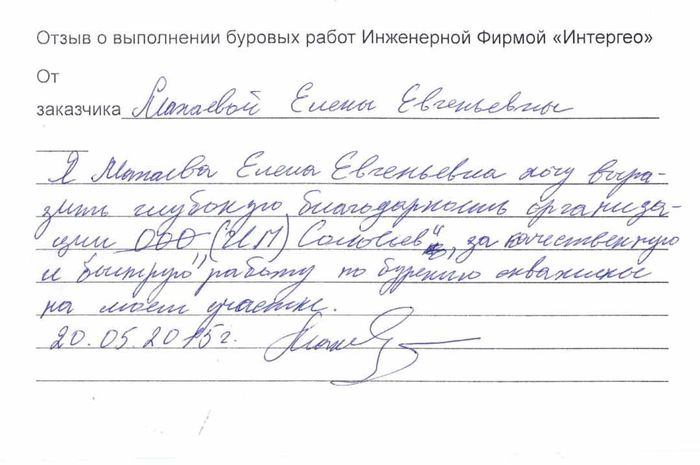 Отзыв о выполнении буровых работ Инженерной Фирмой «Интергео»
От
заказчика Махаевой Елены Евгеньевны
Я Махаева Елена Евгеньевна хочу выра-
зить глубокую благодарность организа-
ции ООО (ИП) Соловьев", за качественную
и "быструю", работу по бурению скважины
на моем участке.
20.05.2015г.